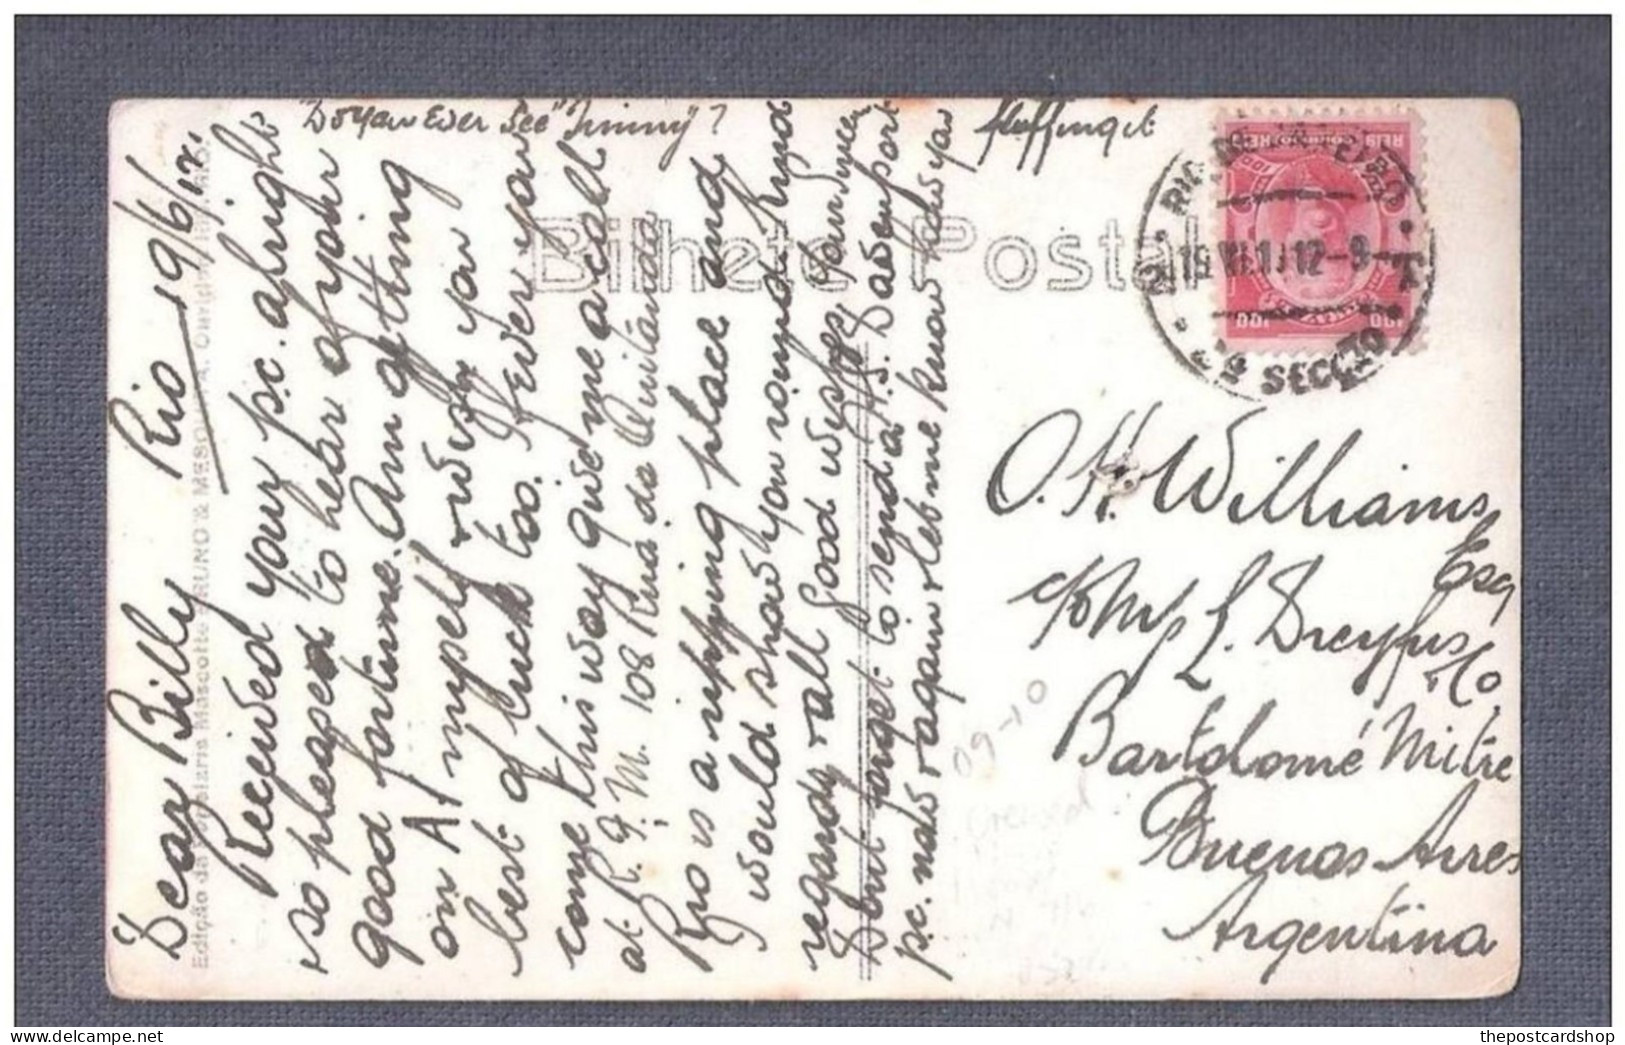 "Do you Ever See "Jimmy"?
Rio 19/6/12.
Dear Billy
Received your p.c. alright
so pleased to hear of your
good fortune. Am getting
on A1 myself & wish you
best of luck too. If ever you
come this way give me a call
at R. G. M. 108 Rua da Quitanda
Rio is a ripping place and
would show you round. Kind
regards & all Good wishes, yours
Dont forget to send a H.S. Davenport
p.c. now & again & let me know how you
Edição da Papelaria Mascotte BRUNO & MESQUITA
Bilhete Postal
RIO DE JANEIRO
19 VI 1 12-9
SECÇÃO
CORREIO
REIS
100
100
O. H. Williams
Esq
c/o M/s L. Dreyfus
& Co.
Bartolomé Mitre
Buenos Aires
Argentina
09-10
thepostcardshop